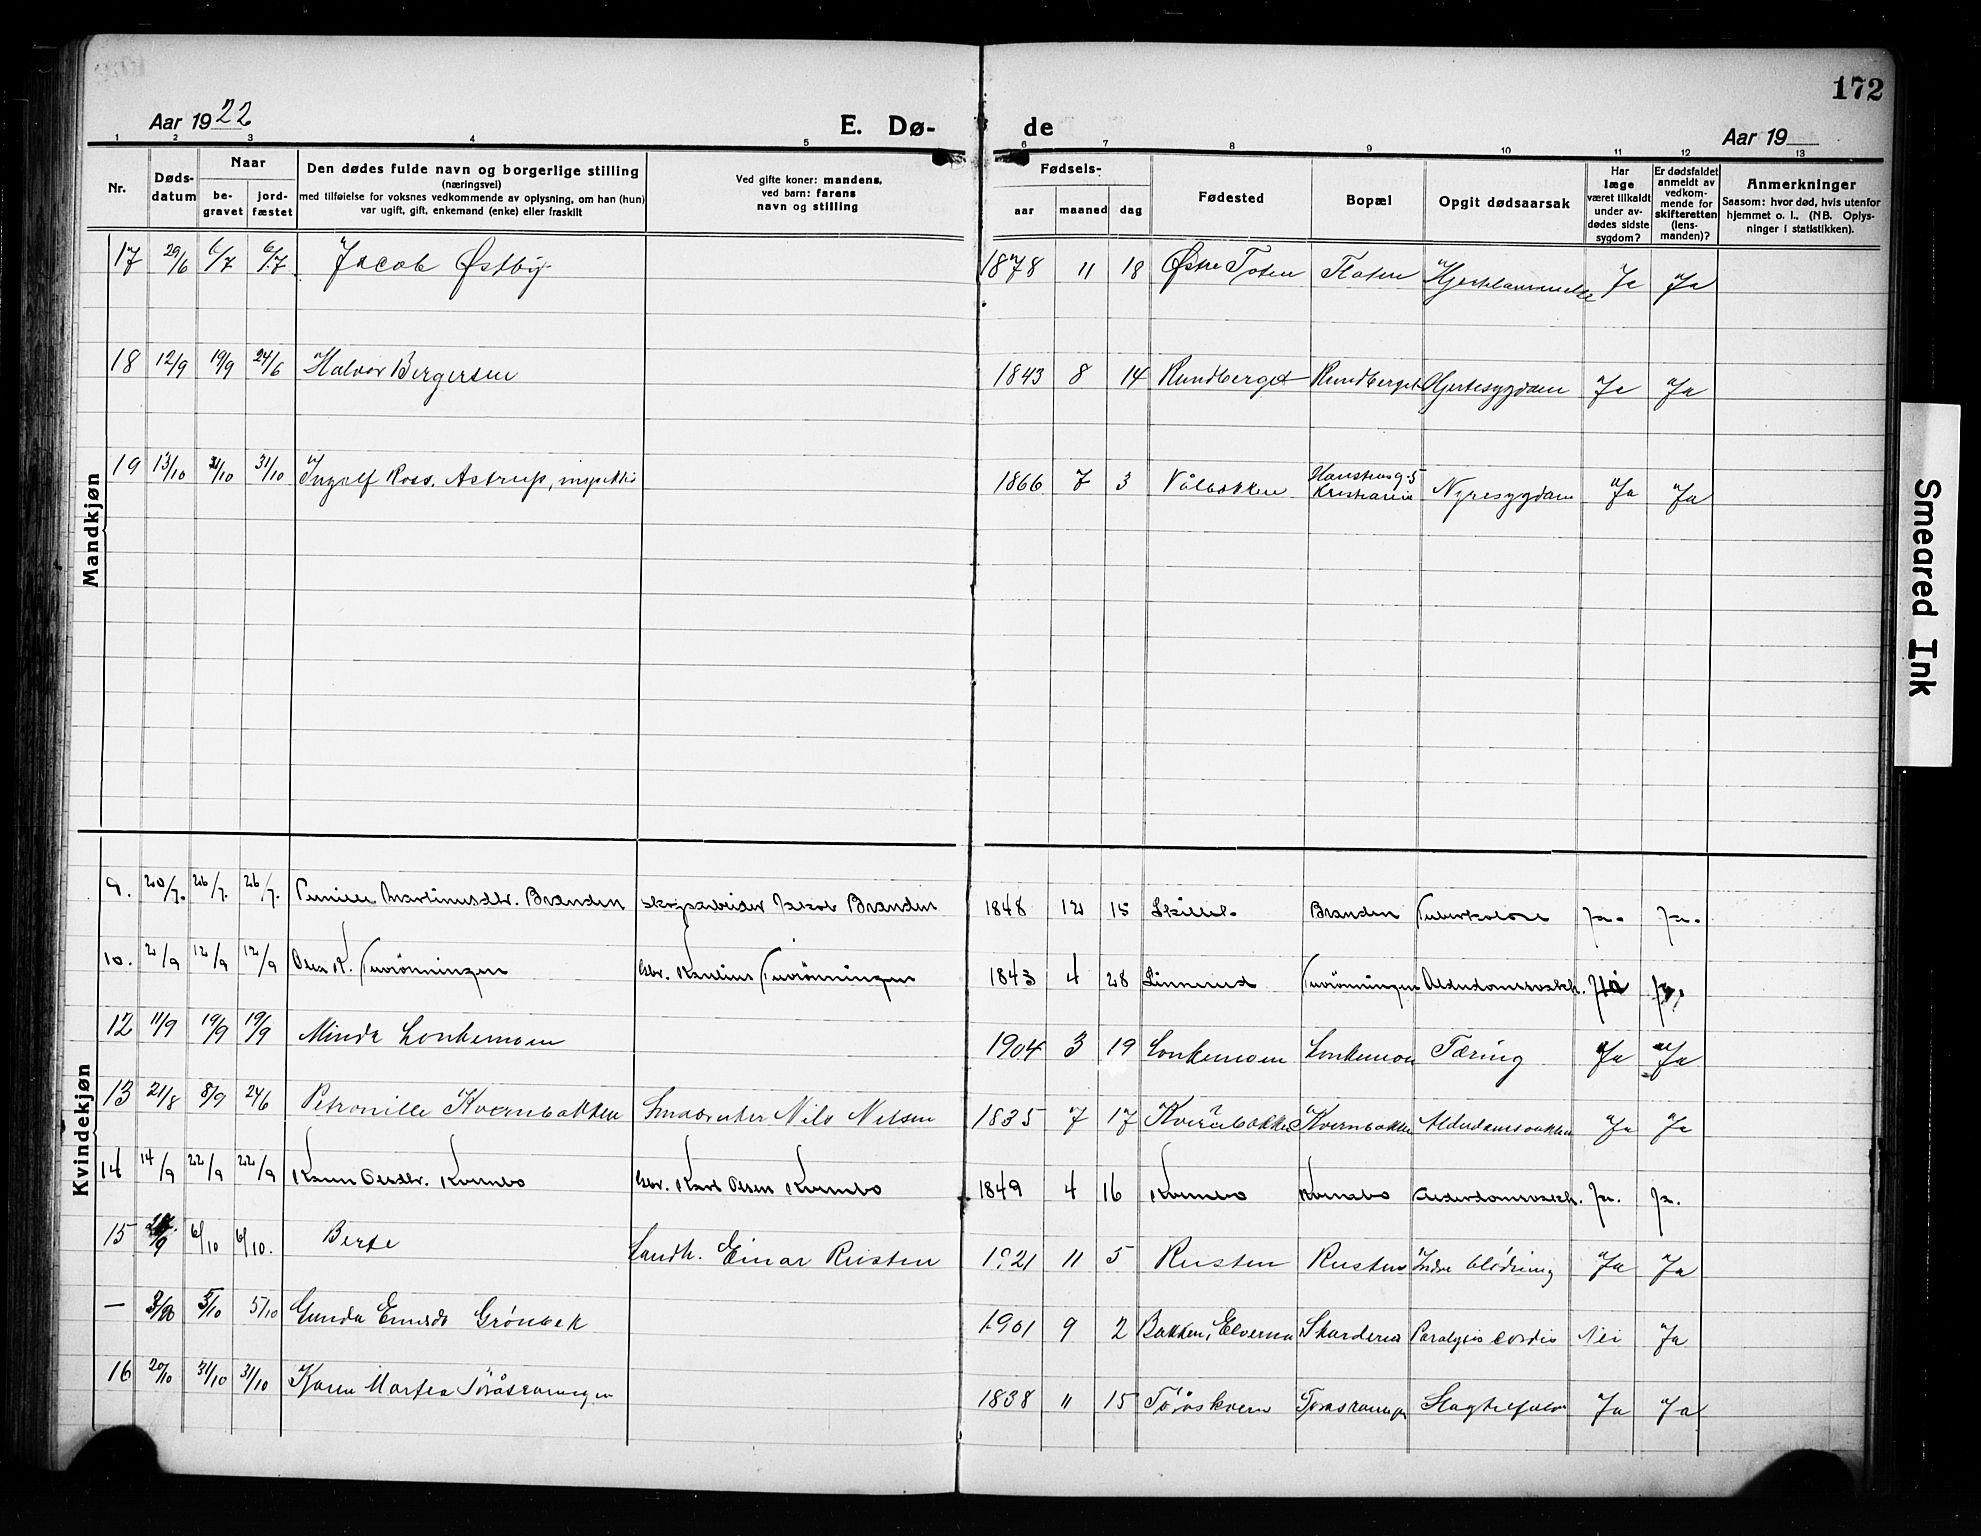 172
Aar 1922 E. Dø- de Aar 19
1 2 3 4 5 6 7 8 9 10 11 12 13
Nr.
Døds-
datum
Naar
be-
gravet
jord-
fæstet
Den dødes fulde navn og borgerlige stilling
(næringsvei)
med tilføielse for voksnes vedkommende av oplysning, om han (hun)
var ugift, gift, enkemand (enke) eller fraskilt
Ved gifte koner: mandens,
ved barn: farens
navn og stilling
Fødsels-
aar maaned dag
Fødested
Bopæl
Opgit dødsaarsak
Har
læge
været tilkaldt
under av-
dødes sidste
sygdom?
Er dødsfaldet
anmeldt av
vedkom-
mende for
skifteretten
(lens-
manden)?
Anmerkninger
Saasom: hvor død, hvis utenfor
hjemmet o. l.. (NB. Oplys-
ninger i statistikken).
Mandkjøn
17 29/6 6/7 6/7 Jacob Østby 1878 11 18 Østre Toten Floten Ja Ja
18 12/9 19/9 24/6 Halvor Bergersen 1843 8 14 Rundberget Rundberget Hjertesygdom Ja Ja
19 13/10 31/10 Ingolf Ross. Astrup, 1866 7 3 Kristiania Nyresygdom Ja Ja
Kvindekjøn
9. 20/7. 26/7. 26/7. Pernille Martinusdtr. Branden Skogsarbeider Jakob Branden 1848 12 15 Branden Tuberkulose Ja. Ja.
10. 2/9 12/9 12/9 Olea K. Gbr. 1843 4 28 Linnerud Alderdomssvakh. Ja Ja,
12 11/9 19/9 19/9 Minda Lonkemoen 1904 3 19 Lonkemoen Lonkemoen Tæring Ja Ja
13 21/8 8/9 24/6 Petronille Kvernbakken Nils Nilsen 1835 7 17 Kvernbakken Kvernbakken Alderdomssvakken Ja Ja
14 14/9 22/9 22/9 Karen Olesdtr. Kvernbo Gbr. Karl Olsen Kvernbo 1849 4 16 Kvernbo Kvernbo Alderdomssvakh. Ja. Ja.
15 6/10 6/10. Berte Landh. Einar Rusten 1921 11 5 Rusten Rusten Indre blødning Ja Ja
— 5/10 5/10 Gunda Grønbek 1901 9 2 Bakken, Elverum Skarderud Paralysis cordis Nei Ja
16 20/10 31/10 31/10 Karen Martea 1838 11 15 Ja Ja
Smeared Ink